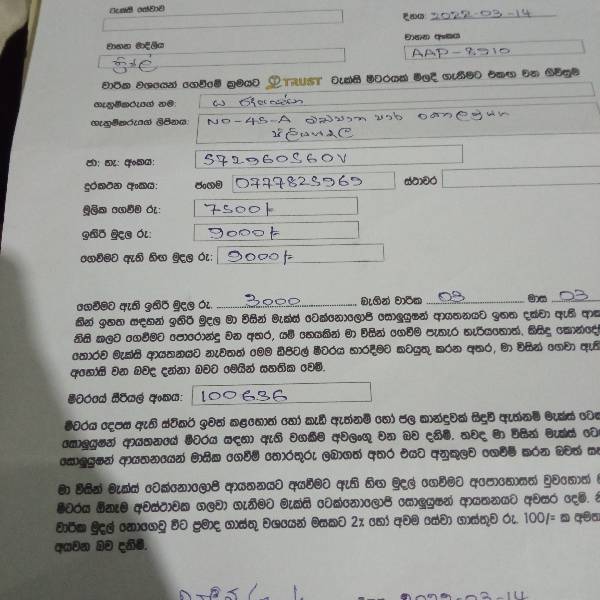 ටැක්සි සේවාව
දිනය 2022-03-14
වාහන මාදිලිය
වාහන අංකය
AAP-8910
වාරික වශයෙන් ගෙවීමේ ක්‍රමයට TRUST ටැක්සි මීටරයක් මිලදී ගැනීමට එකඟ වන ගිවිසුම
ගැනුම්කරුගේ නම:
ගැනුම්කරුගේ ලිපිනය: NO-45-A
ජා: හැ: අංකය: 572960560V
දුරකථන අංකය: ජංගම 0777825969 ස්ථාවර
මූලික ගෙවීම රු: 7500/-
ඉතිරි මුදල රු: 9000/-
ගෙවීමට ඇති හිඟ මුදල රු: 9000/-
ගෙවීමට ඇති ඉතිරි මුදල රු. 3000 බැගින් වාරික 03 මාස 03
කින් ඉහත සඳහන් ඉතිරි මුදල මා විසින් මැක්ස් ටෙක්නොලොජි සොලූයුෂන් ආයතනයට ඉහත දක්වා ඇති
නිසි කලට ගෙවීමට පොරොන්දු වන අතර, යම් හෙයකින් මා විසින් ගෙවීම පැහැර හැරියහොත්, කිසිදු
තොරව මැක්සි ආයතනයට නැවතත් මෙම ඩිජිටල් මීටරය භාරදීමට කටයුතු කරන අතර, මා විසින් ගෙවා
අහෝසි වන බවද දන්නා බවට මෙයින් සහතික වෙමි.
මීටරයේ සීරියල් අංකය: 100636
මීටරය දෙපස ඇති ස්ටිකර් ඉවත් කළහොත් හෝ කැඩී ඇත්නම් හෝ ජල කාන්දුවක් සිදුවී ඇත්නම් මැක්ස්
සොලූයුෂන් ආයතනයේ මීටරය සඳහා ඇති වගකීම අවලංගු වන බව දනිමි. තවද මා විසින් මැක්ස්
සොලූයුෂන් ආයතනයෙන් මාසික ගෙවීම් තොරතුරු ලබාගත් අතර එයට අනුකූලව ගෙවීම් කරන බවත්
මා විසින් මැක්ස් ටෙක්නොලොජි ආයතනයට අයවීමට ඇති හිඟ මුදල් ගෙවීමට අපොහොසත් වුවහොත්
මීටරය ඕනෑම අවස්ථාවක ගලවා ගැනීමට මැක්සි ටෙක්නොලොජි සොලූයුෂන් ආයතනයට අවසර දෙමි.
වාරික මුදල් නොගෙවූ විට ප්‍රමාද ගාස්තු වශයෙන් මසකට 2% හෝ අවම සේවා ගාස්තුව රු. 100/= ක
අයවන බව දනිමි.
2022-03-14